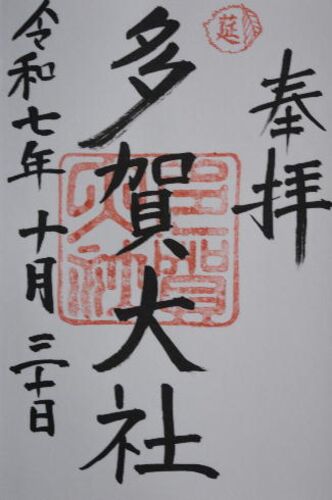 奉拝
延
多賀大社
多賀大社
令和七年十月三十日